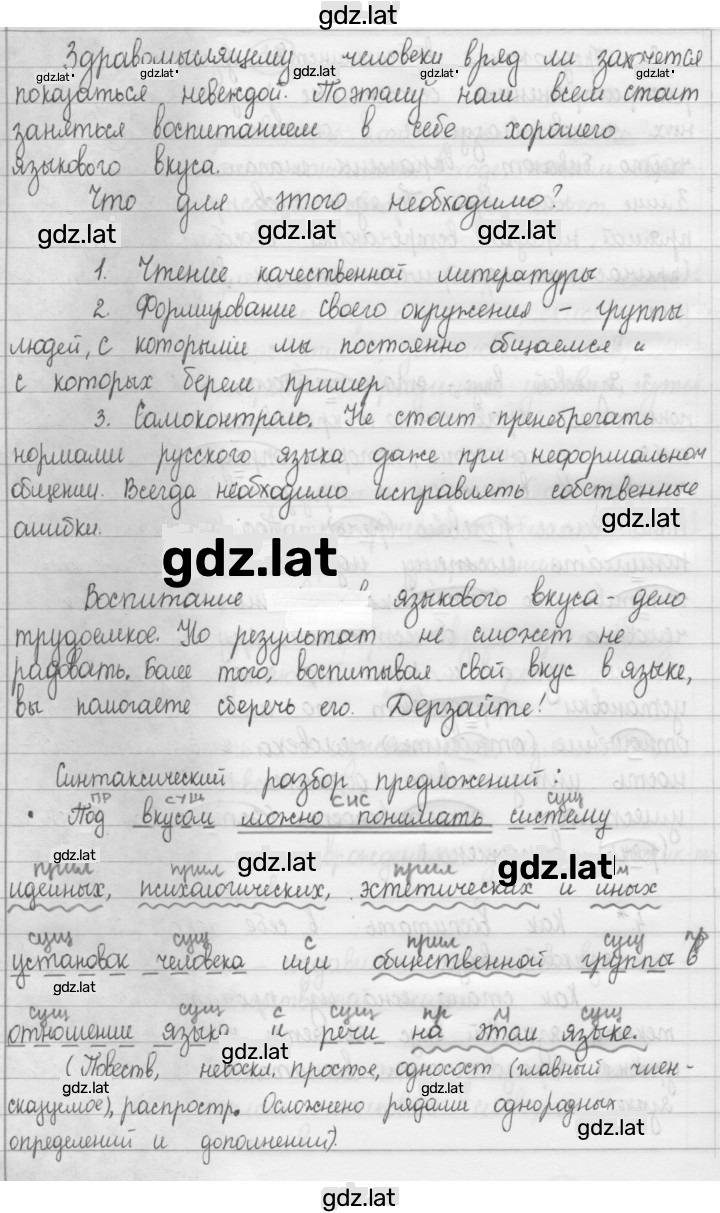 gdz.lat
Здравомыслящему человеку вряд ли захочется
gdz.lat gdz.lat gdz.lat gdz.lat gdz.lat
показаться невеждой. Поэтому нам всем стоит
заняться воспитанием в себе хорошего
языкового вкуса.
Что для этого необходимо?
gdz.lat gdz.lat gdz.lat
1. Чтение качественной литературы
2. Формирование своего окружения – группы
людей, с которыми мы постоянно общаемся и
с которых берем пример
3. Самоконтроль. Не стоит пренебрегать
нормами русского языка даже при неформальном
общении. Всегда необходимо исправлять собственные
gdz.lat
ошибки.
gdz.lat
Воспитание языкового вкуса – дело
трудоемкое. Но результат не сможет не
радовать. Более того, воспитывая свой вкус в языке,
gdz.lat gdz.lat gdz.lat
вы помогаете сберечь его. Дерзайте!
Синтаксический разбор предложений:
пр сущ сис сущ
• Под вкусом можно понимать систему
gdz.lat gdz.lat gdz.lat
прил прил прил м
идейных, психологических, эстетических и иных
сущ сущ с прил сущ пр
установок человека или общественной группы в
gdz.lat
сущ сущ с сущ пр м сущ
отношение языка и речи на этом языке.
gdz.lat
(Повеств, невоскл, простое, односост (главный член-
gdz.lat gdz.lat
сказуемое), распростр. Осложнено рядами однородных
gdz.lat
определений и дополнений).
gdz.lat